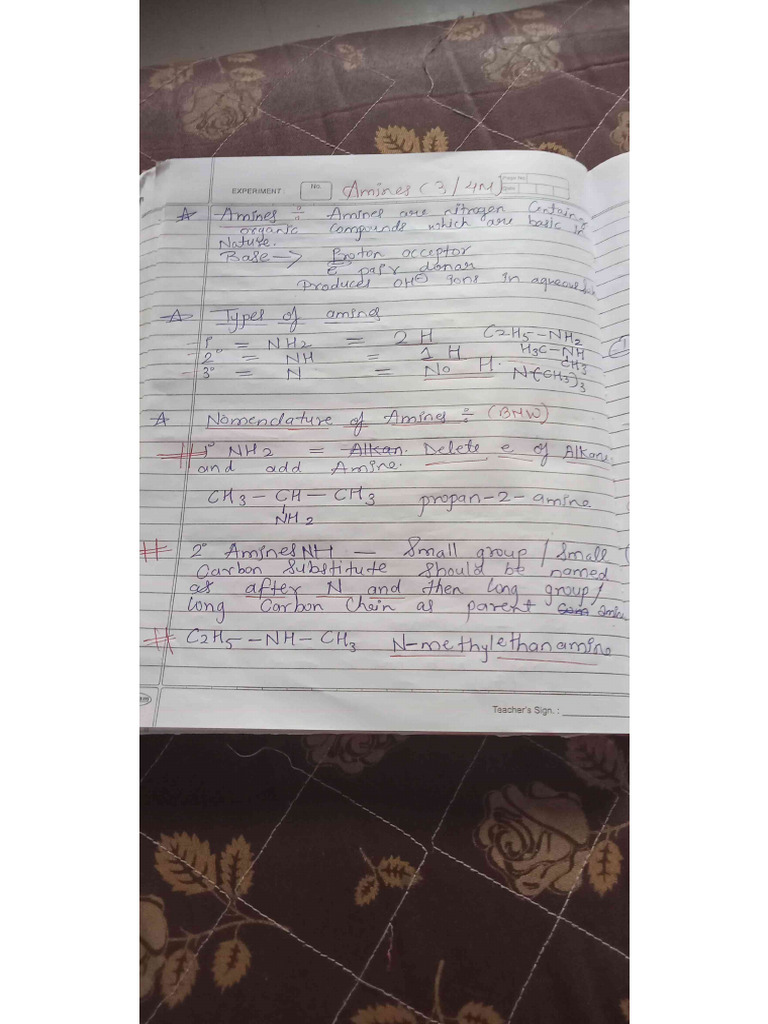 EXPERIMENT : No. Amines (3/4M) Page No. Date
Amines :- Amines are nitrogen Containing
organic compounds which are basic in
Nature.
Base → Proton acceptor
e⁻ pair donar
Produces OH⊖ ions in aqueous
A Types of amines
1° = NH2 = 2 H C2H5-NH2
2° = NH = 1 H H3C-NH
CH3
3° = N = No H. N(CH3)3
A Nomenclature of Amines :- (BMW)
# 1° NH2 = Alkan. Delete e of Alkane
and add Amine.
CH3 - CH - CH3 propan-2-amine
NH2
# 2° Amines NH — Small group / Small
Carbon Substitute should be named
as after N and then long group/
long Carbon Chein as parent amine
# C2H5 -NH- CH3 N-methylethanamine
Teacher's Sign. :